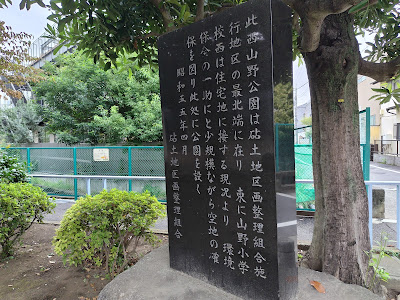 此西山野公園は砧土地区画整理組合地
行地区の最北端に在り 東に山野小学
校西は住宅地に接する現況より 環境
保全の一助にと少規模ながら空地の確
保を図り此処に公園を設く
昭和五五年四月
砧土地区画整理組合